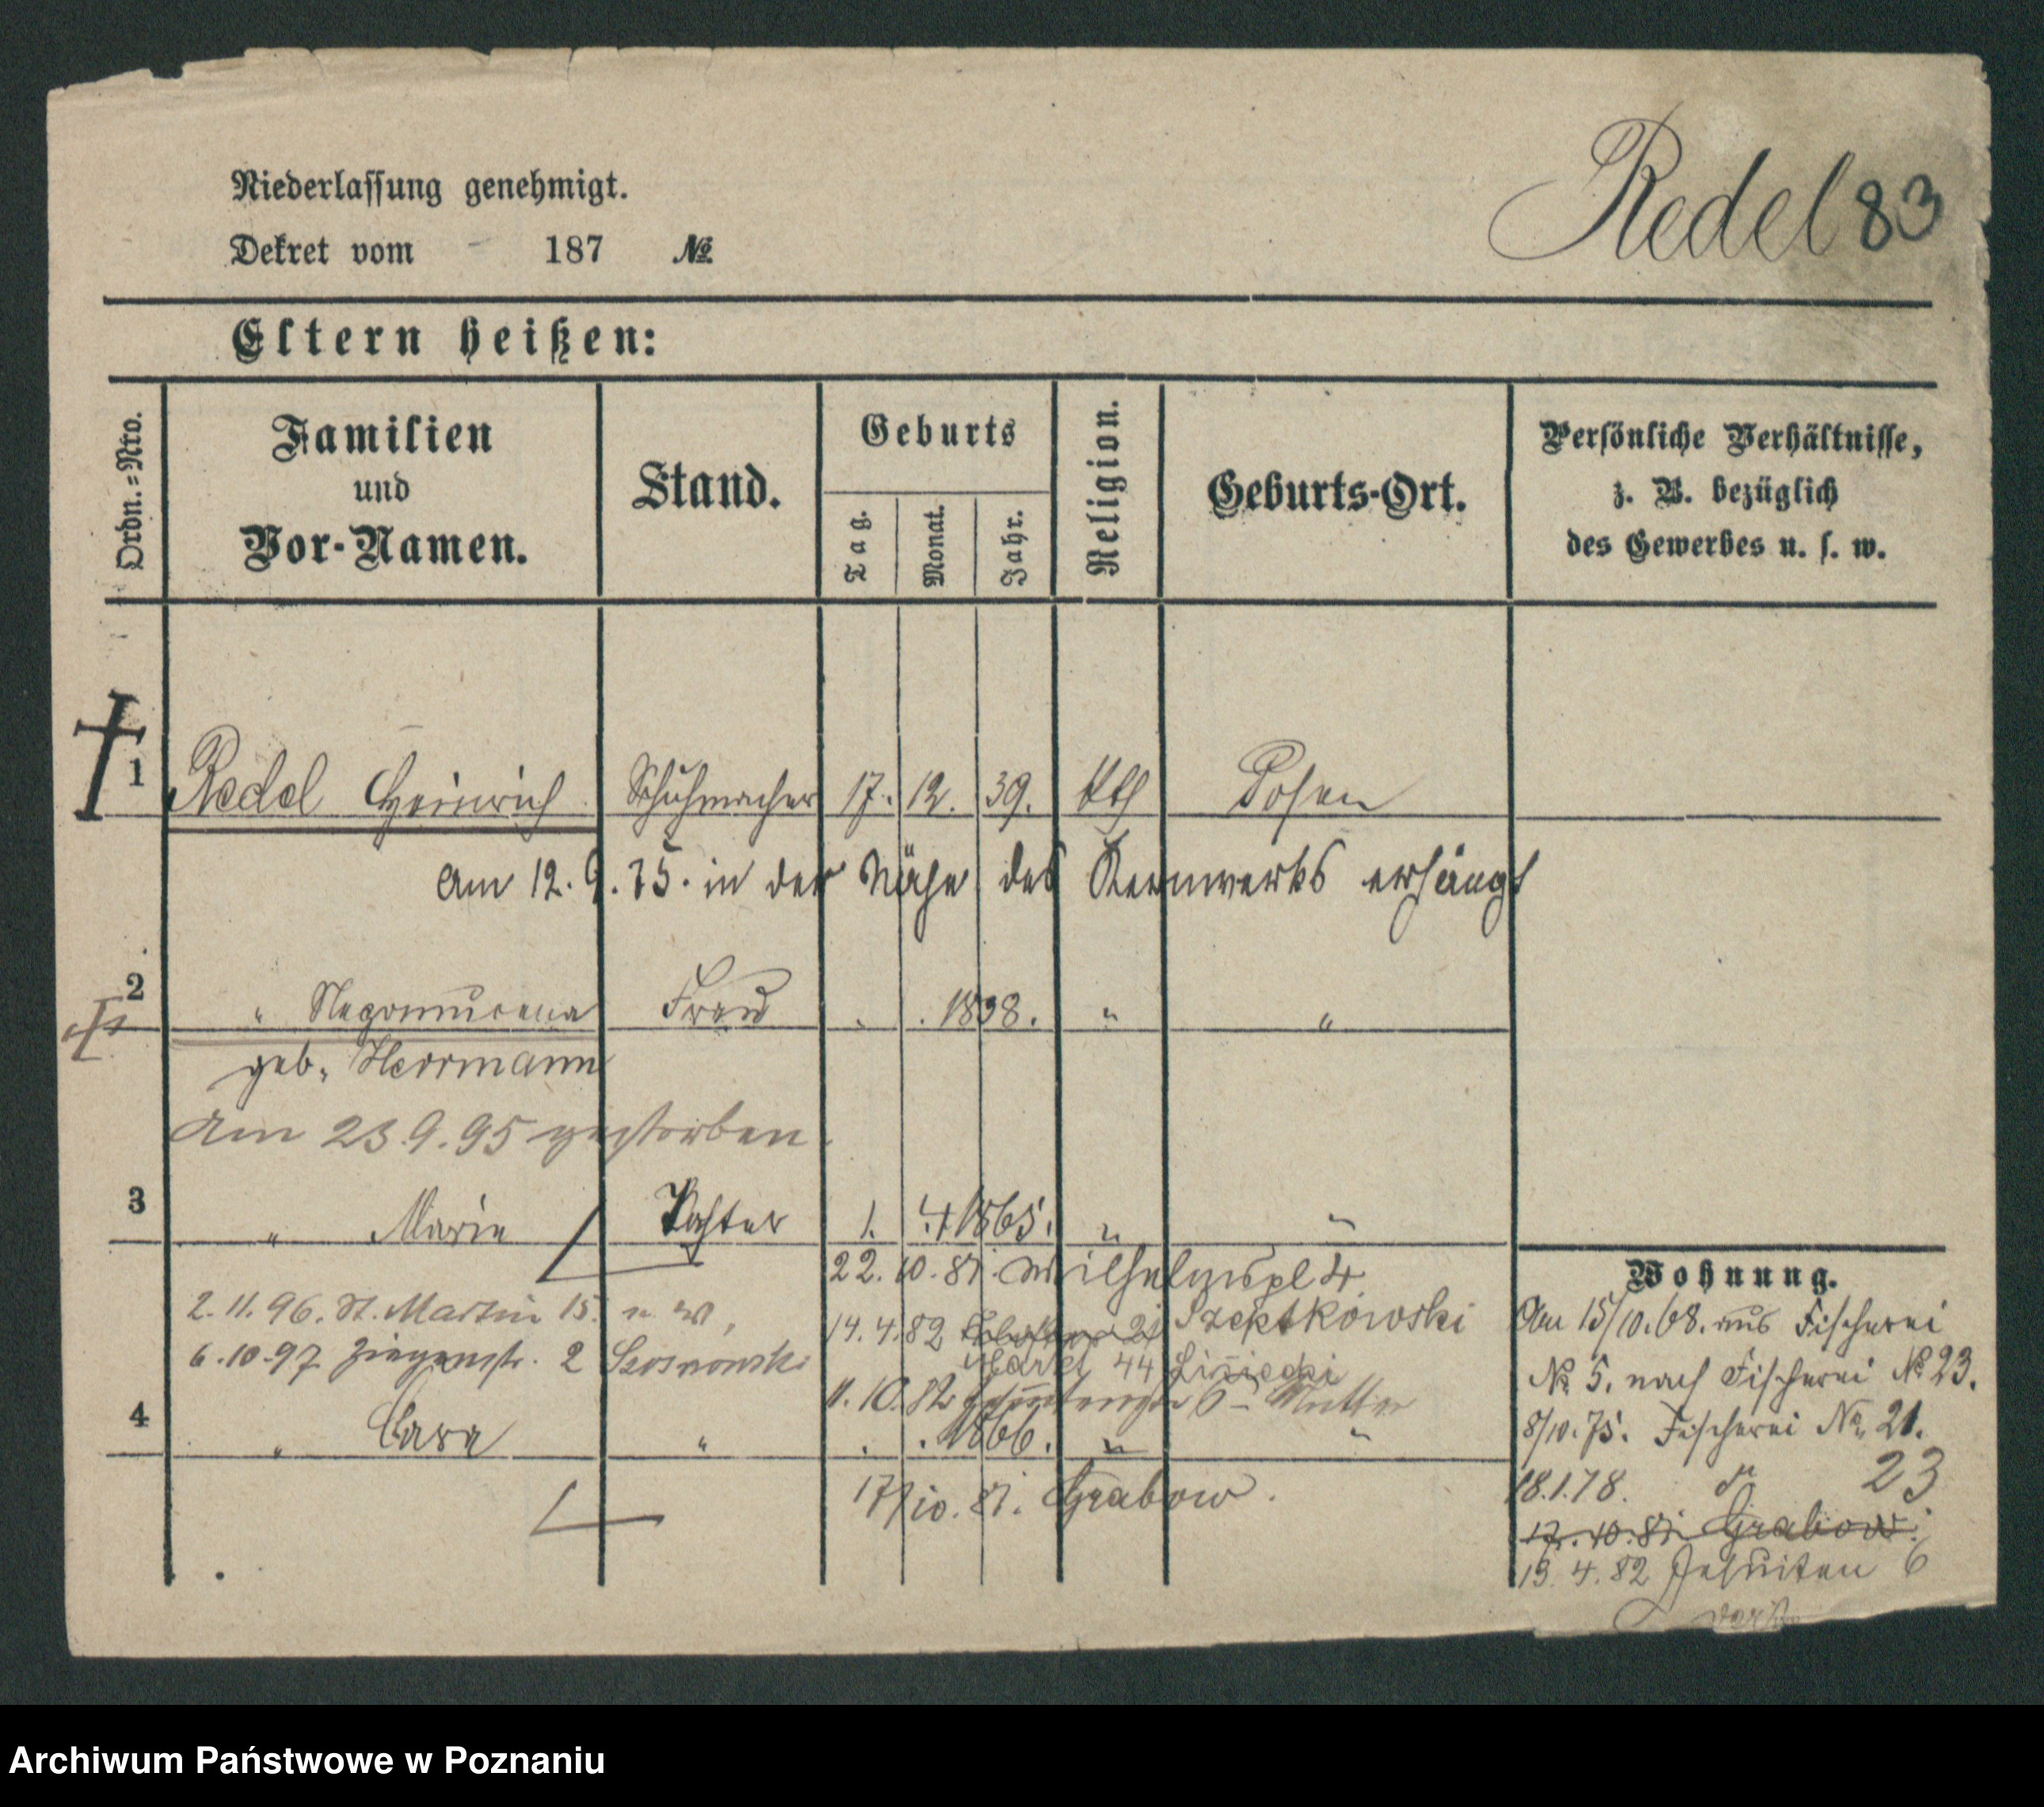 Redel 83
Niederlassung genehmigt.
Dekret vom 187 №
Eltern heißen:
Ordn.=Nro.
Familien
und
Vor-Namen.
Stand.
Geburts
Tag.
Monat.
Jahr.
Religion.
Geburts-Ort.
Persönliche Verhältnisse,
z. B. bezüglich
des Gewerbes u. s. w.
1 Redel Heinrich Schuhmacher 17. 12. 39. kth Posen
Am 12. 9. 75. in der Nähe des Kernwerks erhängt
2 " Frau . . 1838. " "
geb. Herrmann
Am 23.9.95 gestorben.
3 " Marie Tochter 1. 4. 1865. " "
22. 10. 81. Wilhelmspl 4
2.11.96. St. Martin 15.
14.4.82 Szeptkowski
6.10.97 Ziegenstr. 2
Markt 44
11.10.82 6 - Mutter
4 " " . . 1866. " "
17/10. 81. Grabow.
Wohnung.
Am 15/10.68. aus Fischerei
№ 5. nach Fischerei № 23.
8/10.75. Fischerei No. 21.
18.1.78. 23
17.10.81. Grabow.
13.4.82 Jesuiten 6
Archiwum Państwowe w Poznaniu